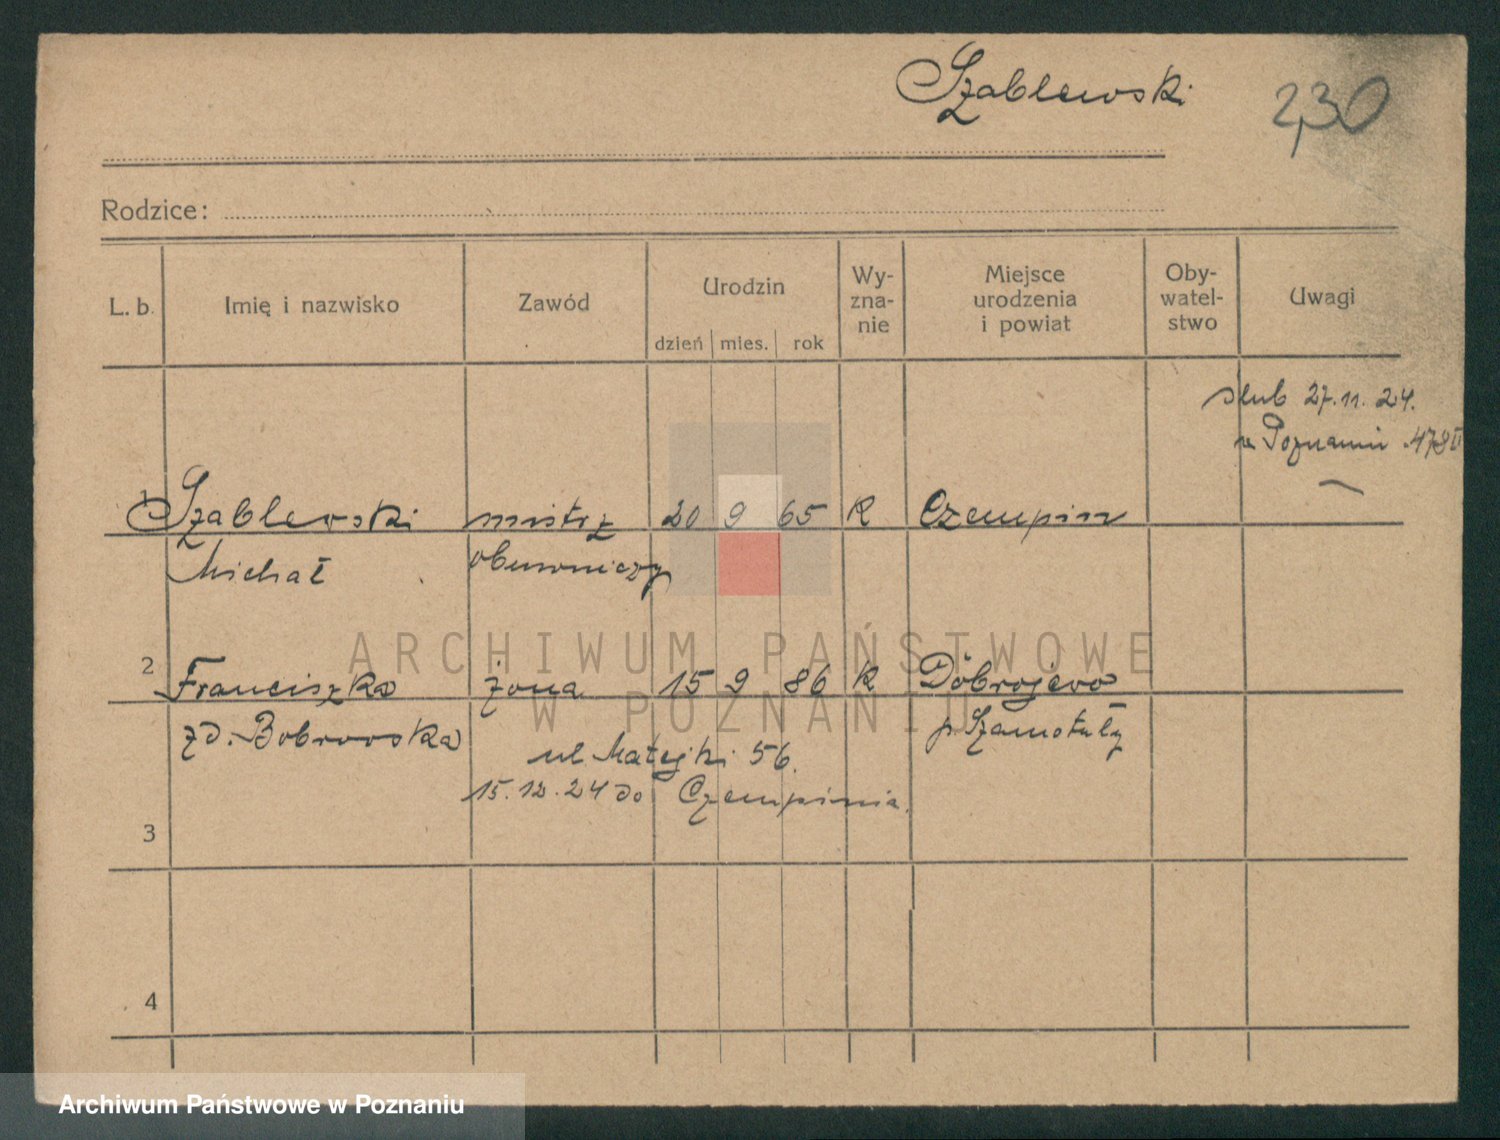 Szablewski
230
Rodzice:
L. b. Imię i nazwisko Zawód Urodzin dzień mies. rok Wy-zna-nie Miejsce urodzenia i powiat Oby-watel-stwo Uwagi
slub 27.11.24.
w Poznaniu 478 II
1 Szablewski mistrz 20 9 65 K Czempin
Michał obuwniczy
ARCHIWUM PAŃSTWOWE
2 Franciszka żona 15 9 86 K Dobrojewo
W POZNANIU
zd. Bobrowska p. Szamotuły
ul Matejki 56.
15.12.24 do Czempinia.
3
4
Archiwum Państwowe w Poznaniu